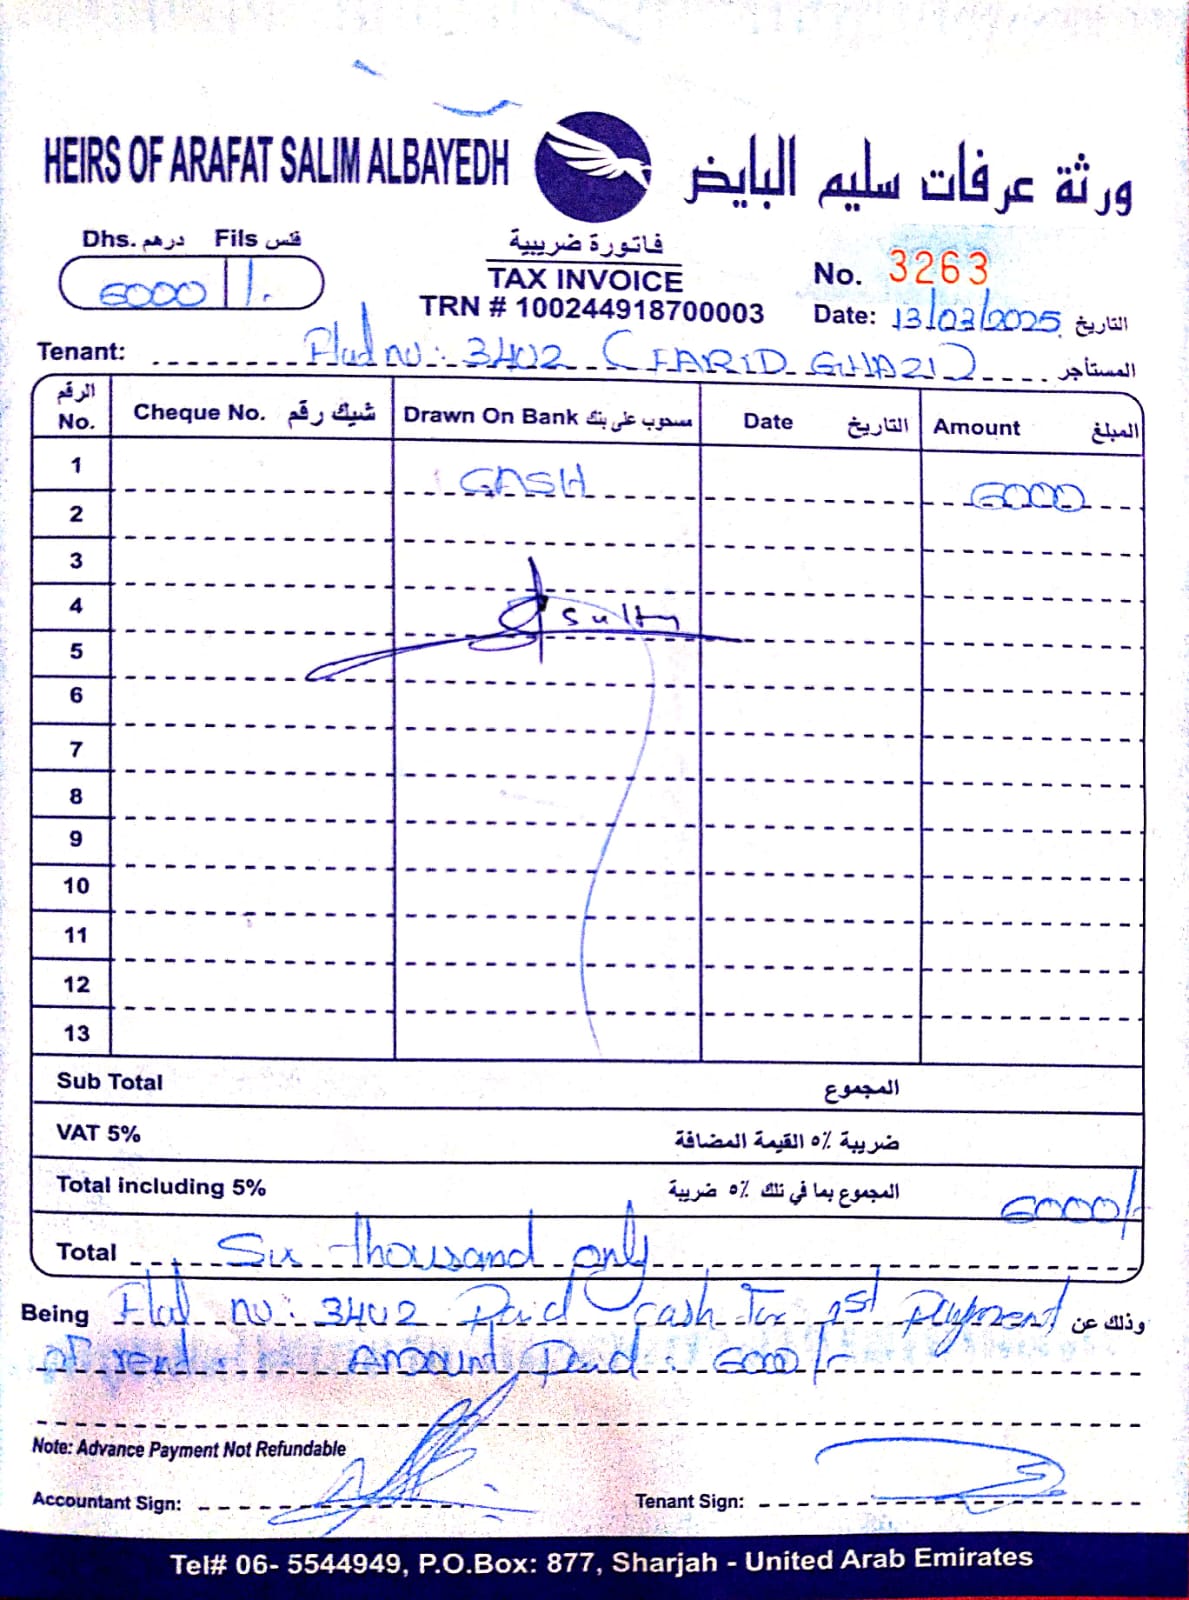 HEIRS OF ARAFAT SALIM ALBAYEDH ورثة عرفات سليم البايض
Dhs. درهم Fils فلس
6000 /-
فاتورة ضريبية
TAX INVOICE
TRN # 100244918700003
No. 3263
Date: 13/03/2025 التاريخ
Tenant: Flat no: 3402 (FARID GHAZI) المستأجر
الرقم No. Cheque No. شيك رقم Drawn On Bank مسحوب على بنك Date التاريخ Amount المبلغ
1 CASH 6000
2
3
4
5
6
7
8
9
10
11
12
13
Sub Total المجموع
VAT 5% ضريبة ٥٪ القيمة المضافة
Total including 5% المجموع بما في ذلك ٥٪ ضريبة 6000/-
Total Six thousand only
Being Flat no: 3402 Paid cash for 1st Payment وذلك عن
of rent. Amount Paid: 6000/-
Note: Advance Payment Not Refundable
Accountant Sign:
Tenant Sign:
Tel# 06- 5544949, P.O.Box: 877, Sharjah - United Arab Emirates